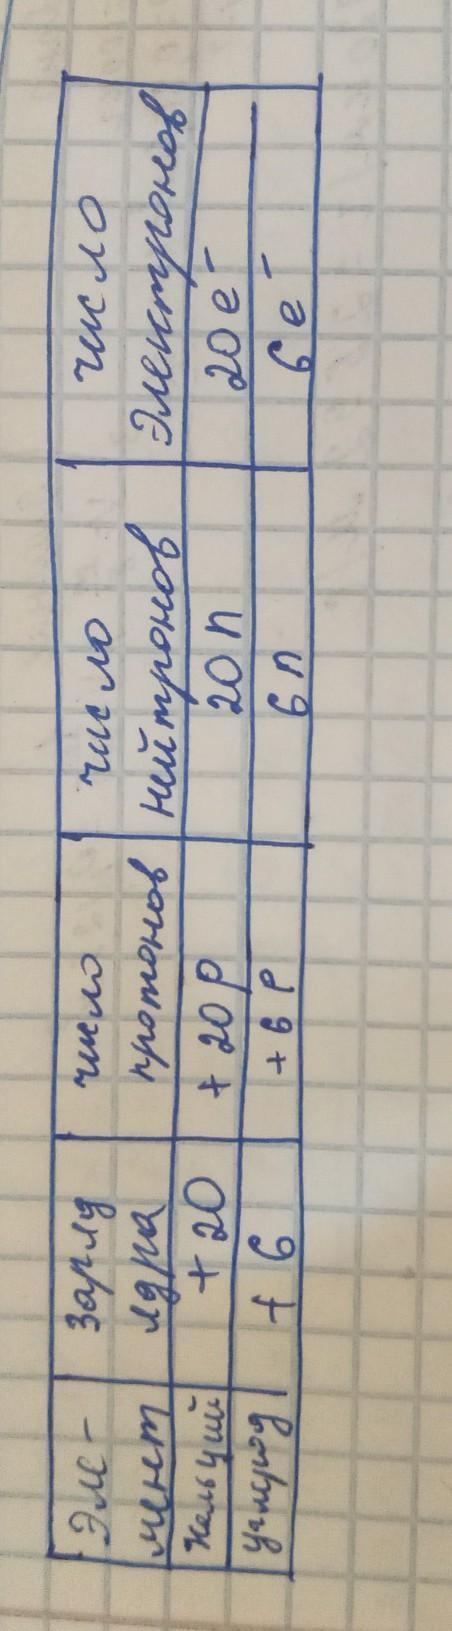 Эле- заряд число число число
мент ядра протонов нейтронов электронов
Кальций + 20 + 20 p 20 n 20 e⁻
Углерод + 6 + 6 p 6 n 6 e⁻